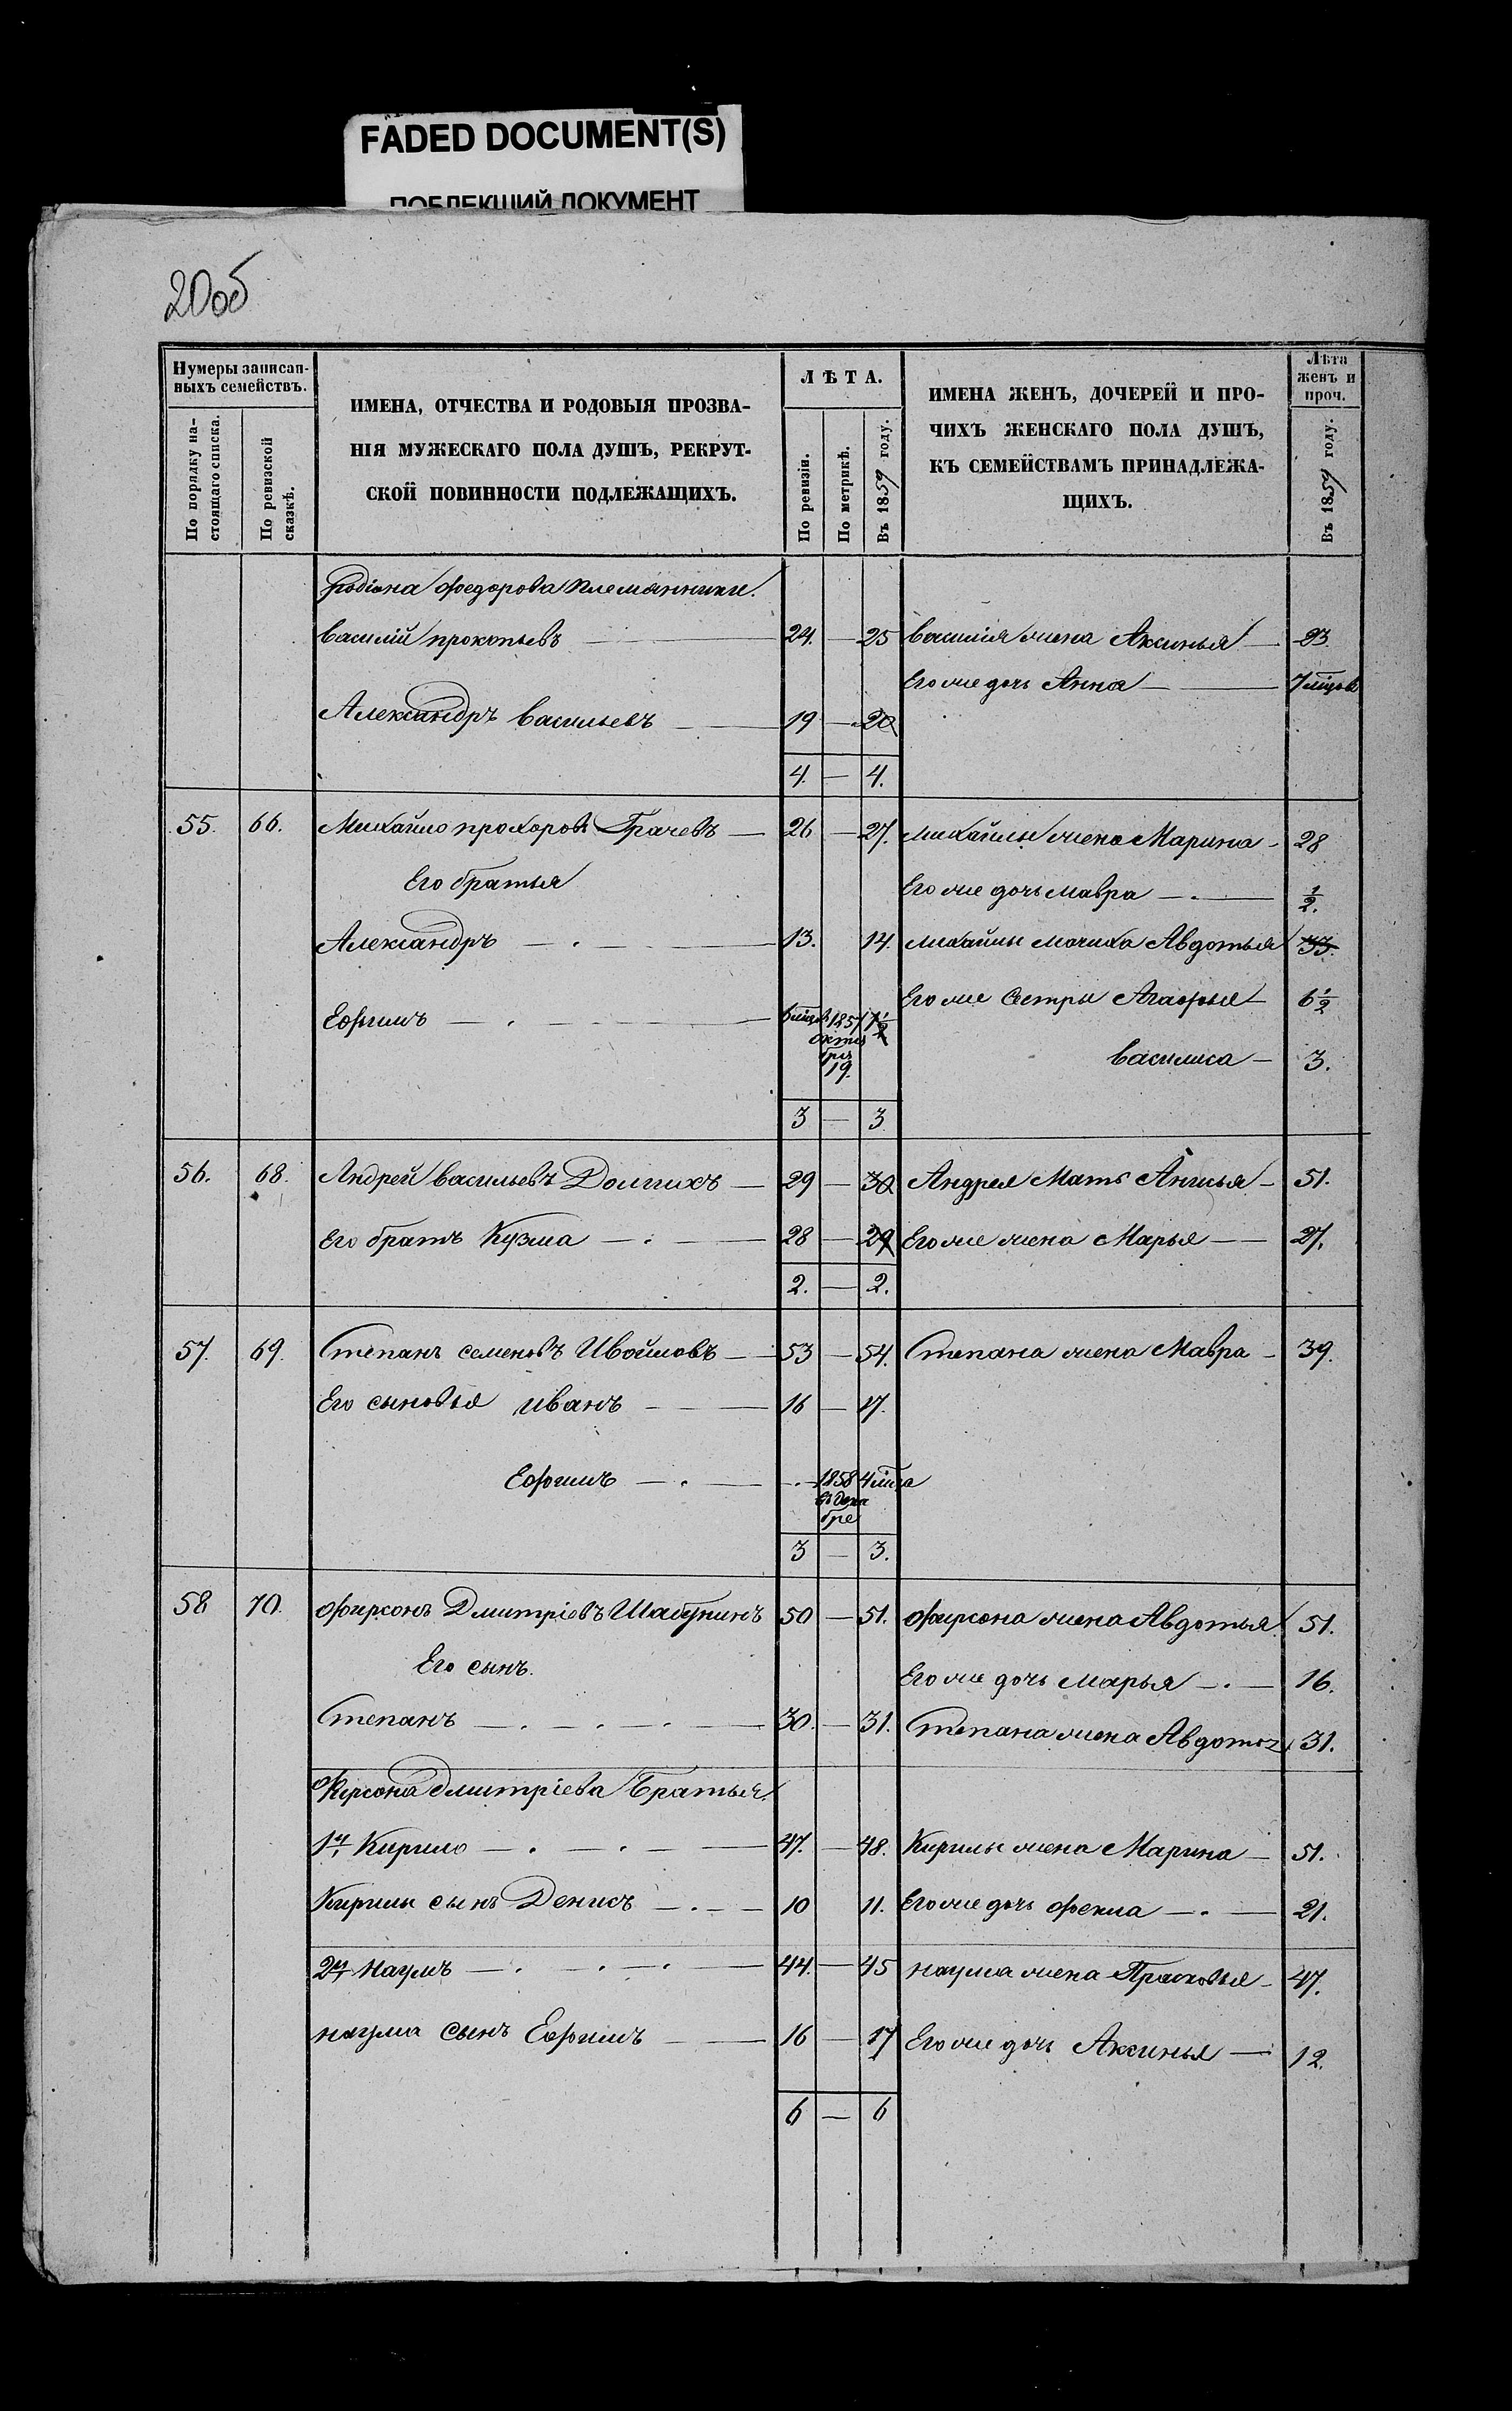 FADED DOCUMENT(S)
ПОБЛЕКШИЙ ДОКУМЕНТ
20об
Нумеры записан-
ныхъ семействъ.
По порядку на-
стоящаго списка.
По ревизской
сказкѣ.
ИМЕНА, ОТЧЕСТВА И РОДОВЫЯ ПРОЗВА-
НІЯ МУЖЕСКАГО ПОЛА ДУШЪ, РЕКРУТ-
СКОЙ ПОВИННОСТИ ПОДЛЕЖАЩИХЪ.
ЛѢТА.
По ревизіи.
По метрикѣ.
Въ 1859 году.
ИМЕНА ЖЕНЪ, ДОЧЕРЕЙ И ПРО-
ЧИХЪ ЖЕНСКАГО ПОЛА ДУШЪ,
КЪ СЕМЕЙСТВАМЪ ПРИНАДЛЕЖА-
ЩИХЪ.
Лѣта
женъ и
проч.
Въ 1859 году.
Родіона Федорова племянники.
Василій Прокопьевъ — 24. — 25 Василія жена Аксинья — 23.
Его же дочь Анна — 7 мѣцов
Александръ Васильевъ — 19 — 20
4. — 4.
55. 66. Михайло Прохоровъ Грачевъ — 26 — 27. Михайлы жена Марина — 28
Его братья Его же дочь Мавра — 1/2.
Александръ — 13. 14. Михайлы мачиха Авдотья 33.
Ефимъ — 6 мѣцов 1857 октя бря 19. 1 1/2 Его же сестры Агафья — 6 1/2
Василиса — 3.
3 — 3
56. 68. Андрей Васильевъ Долгихъ — 29 — 30 Андрея мать Анисья — 51.
Его братъ Кузма — 28 — 29 Его же жена Марья — 27.
2. — 2.
57. 69. Степанъ Семеновъ Ивойловъ — 53 — 54. Степана жена Мавра — 39.
Его сыновья Иванъ — 16 — 17.
Ефимъ — 1858 въ дека бре 4 мѣца
3 — 3.
58 70. Фирсонъ Дмитріевъ Шабунинъ 50 — 51. Фирсона жена Авдотья 51.
Его сынъ. Его же дочь Марья — 16.
Степанъ — 30. — 31. Степана жена Авдотья 31.
Фирсона Дмитріева Братья.
1й Кирило — 47. — 48. Кирилы жена Марина — 51.
Кирилы сынъ Денисъ — 10 11. Его же дочь Фекла — 21.
2й Наумъ — 44. — 45 Наума жена Прасковья — 47.
Наума сынъ Ефимъ — 16 — 17 Его же дочь Аксинья — 12.
6 — 6